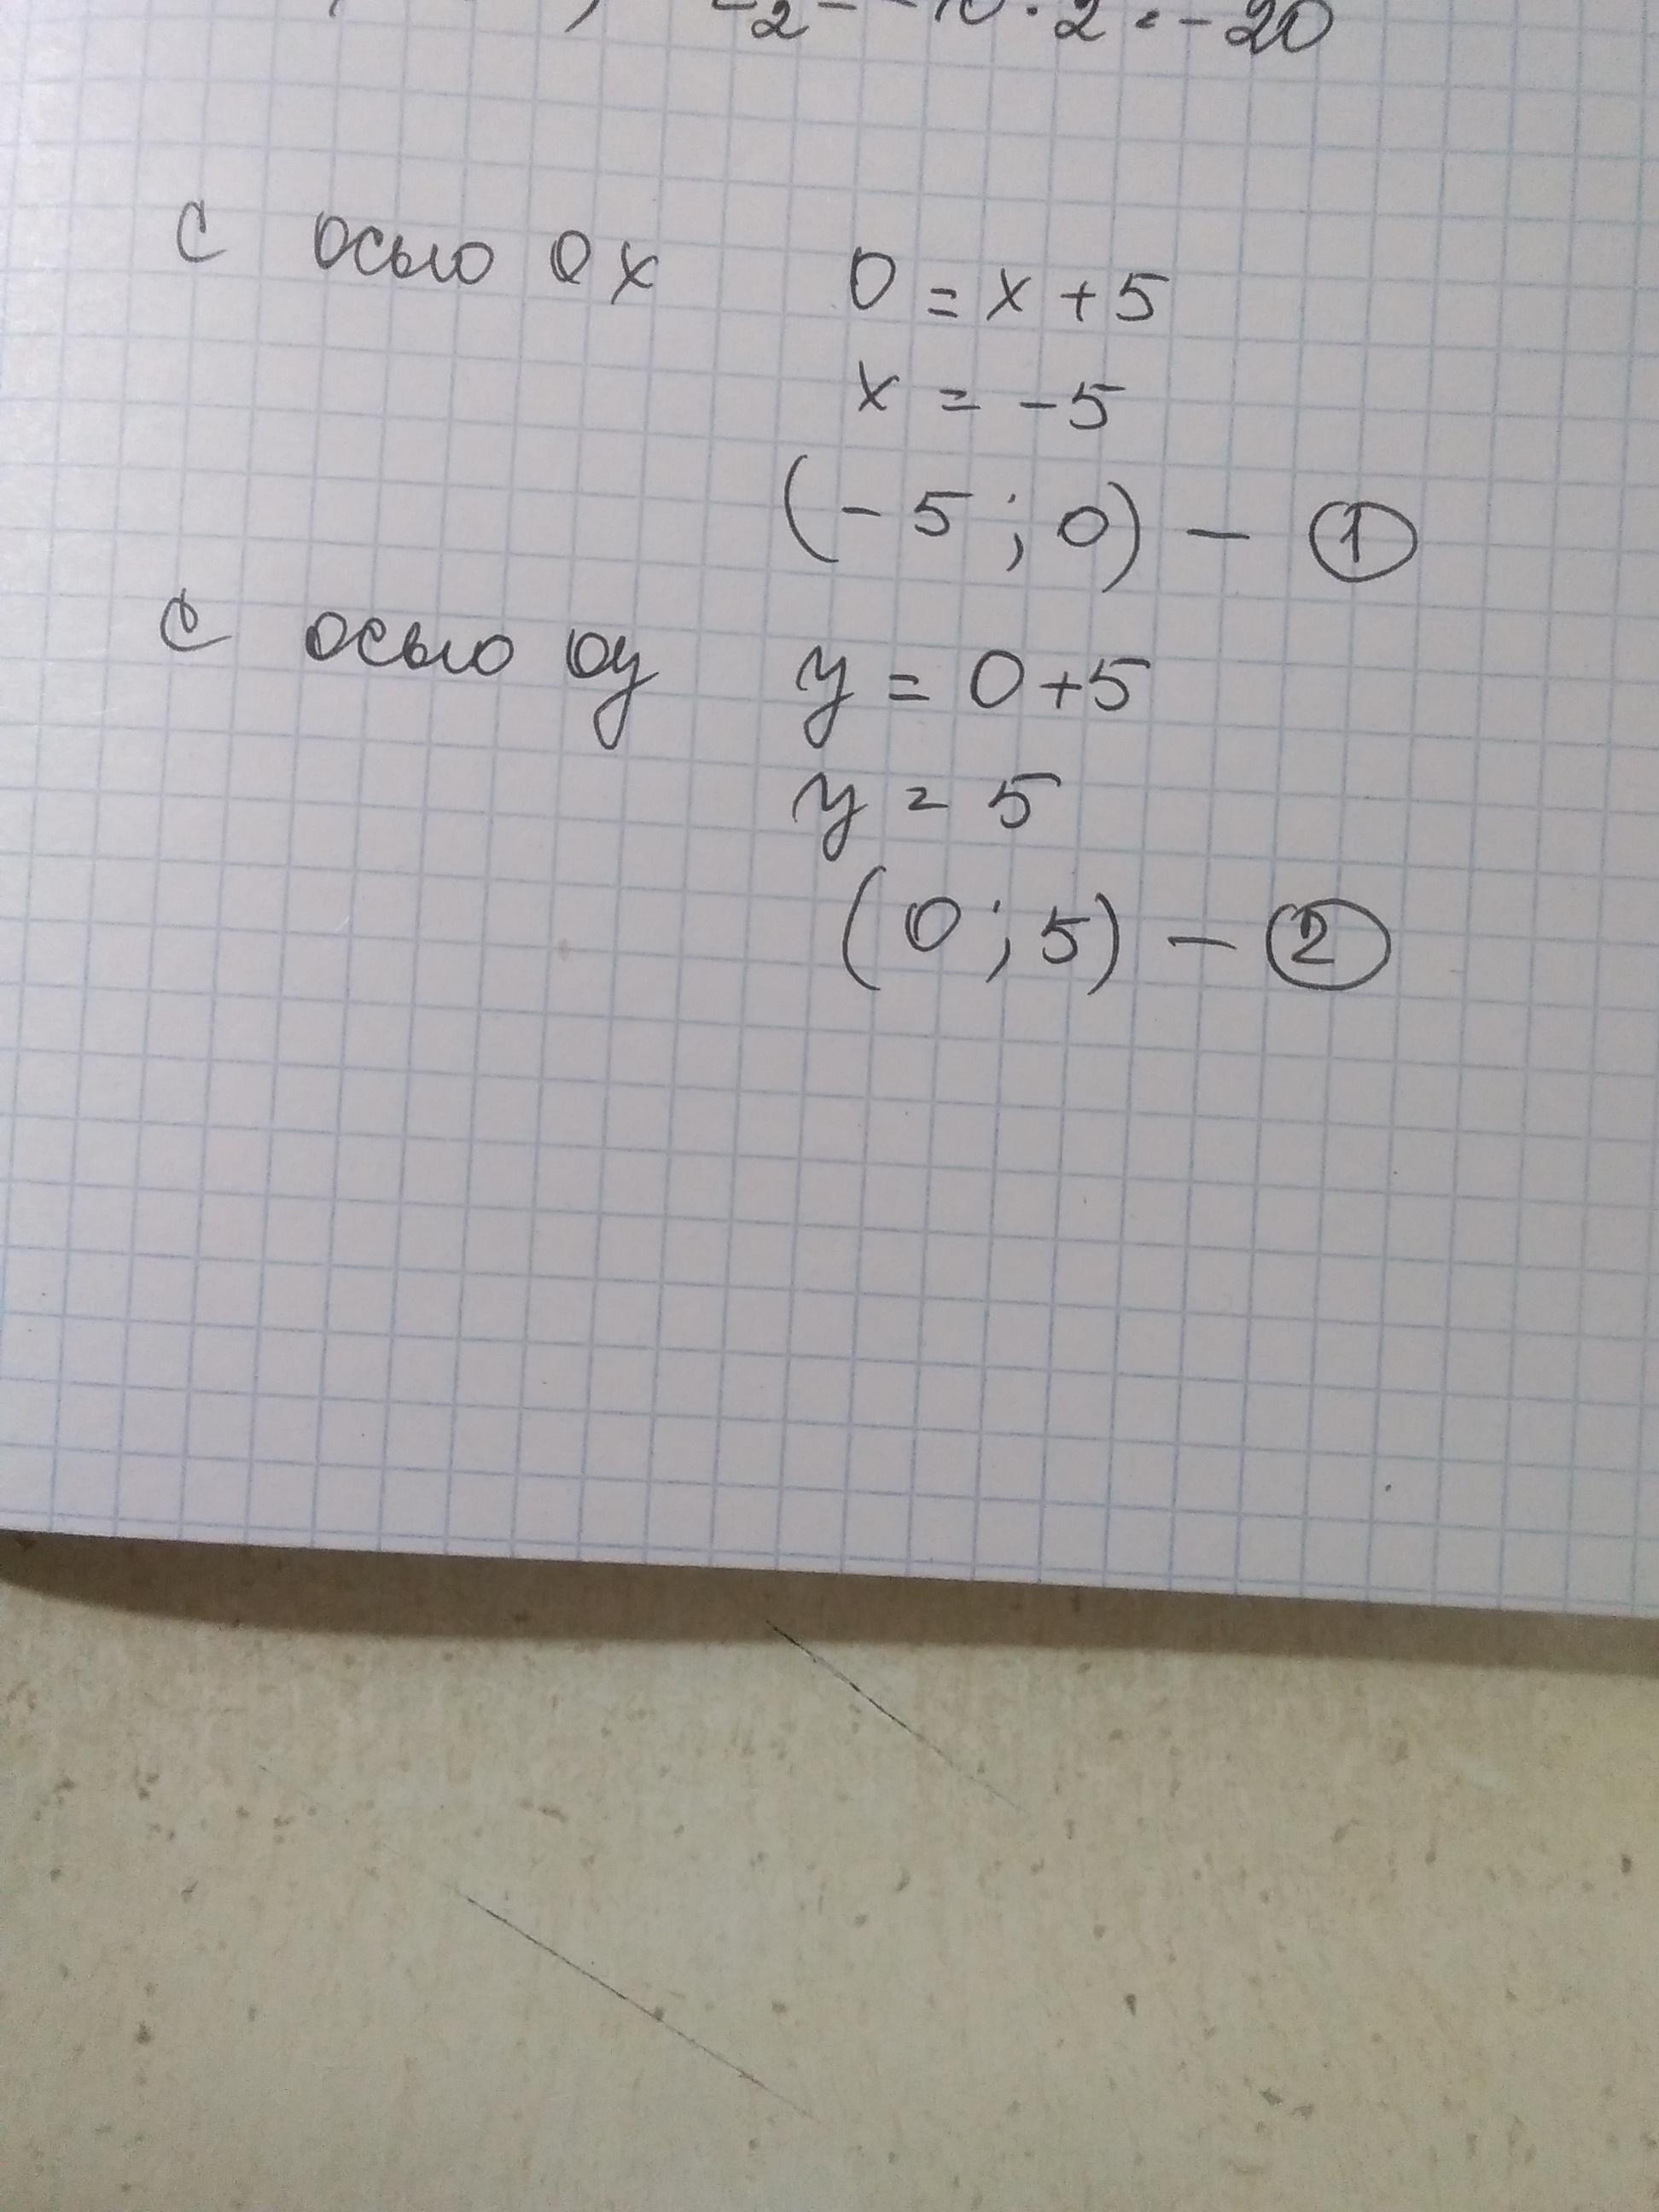 2 = -10 · 2 = -20
С осью Ох 0 = x + 5
x = -5
(-5; 0) - ①
С осью Оу y = 0 + 5
y = 5
(0; 5) - ②